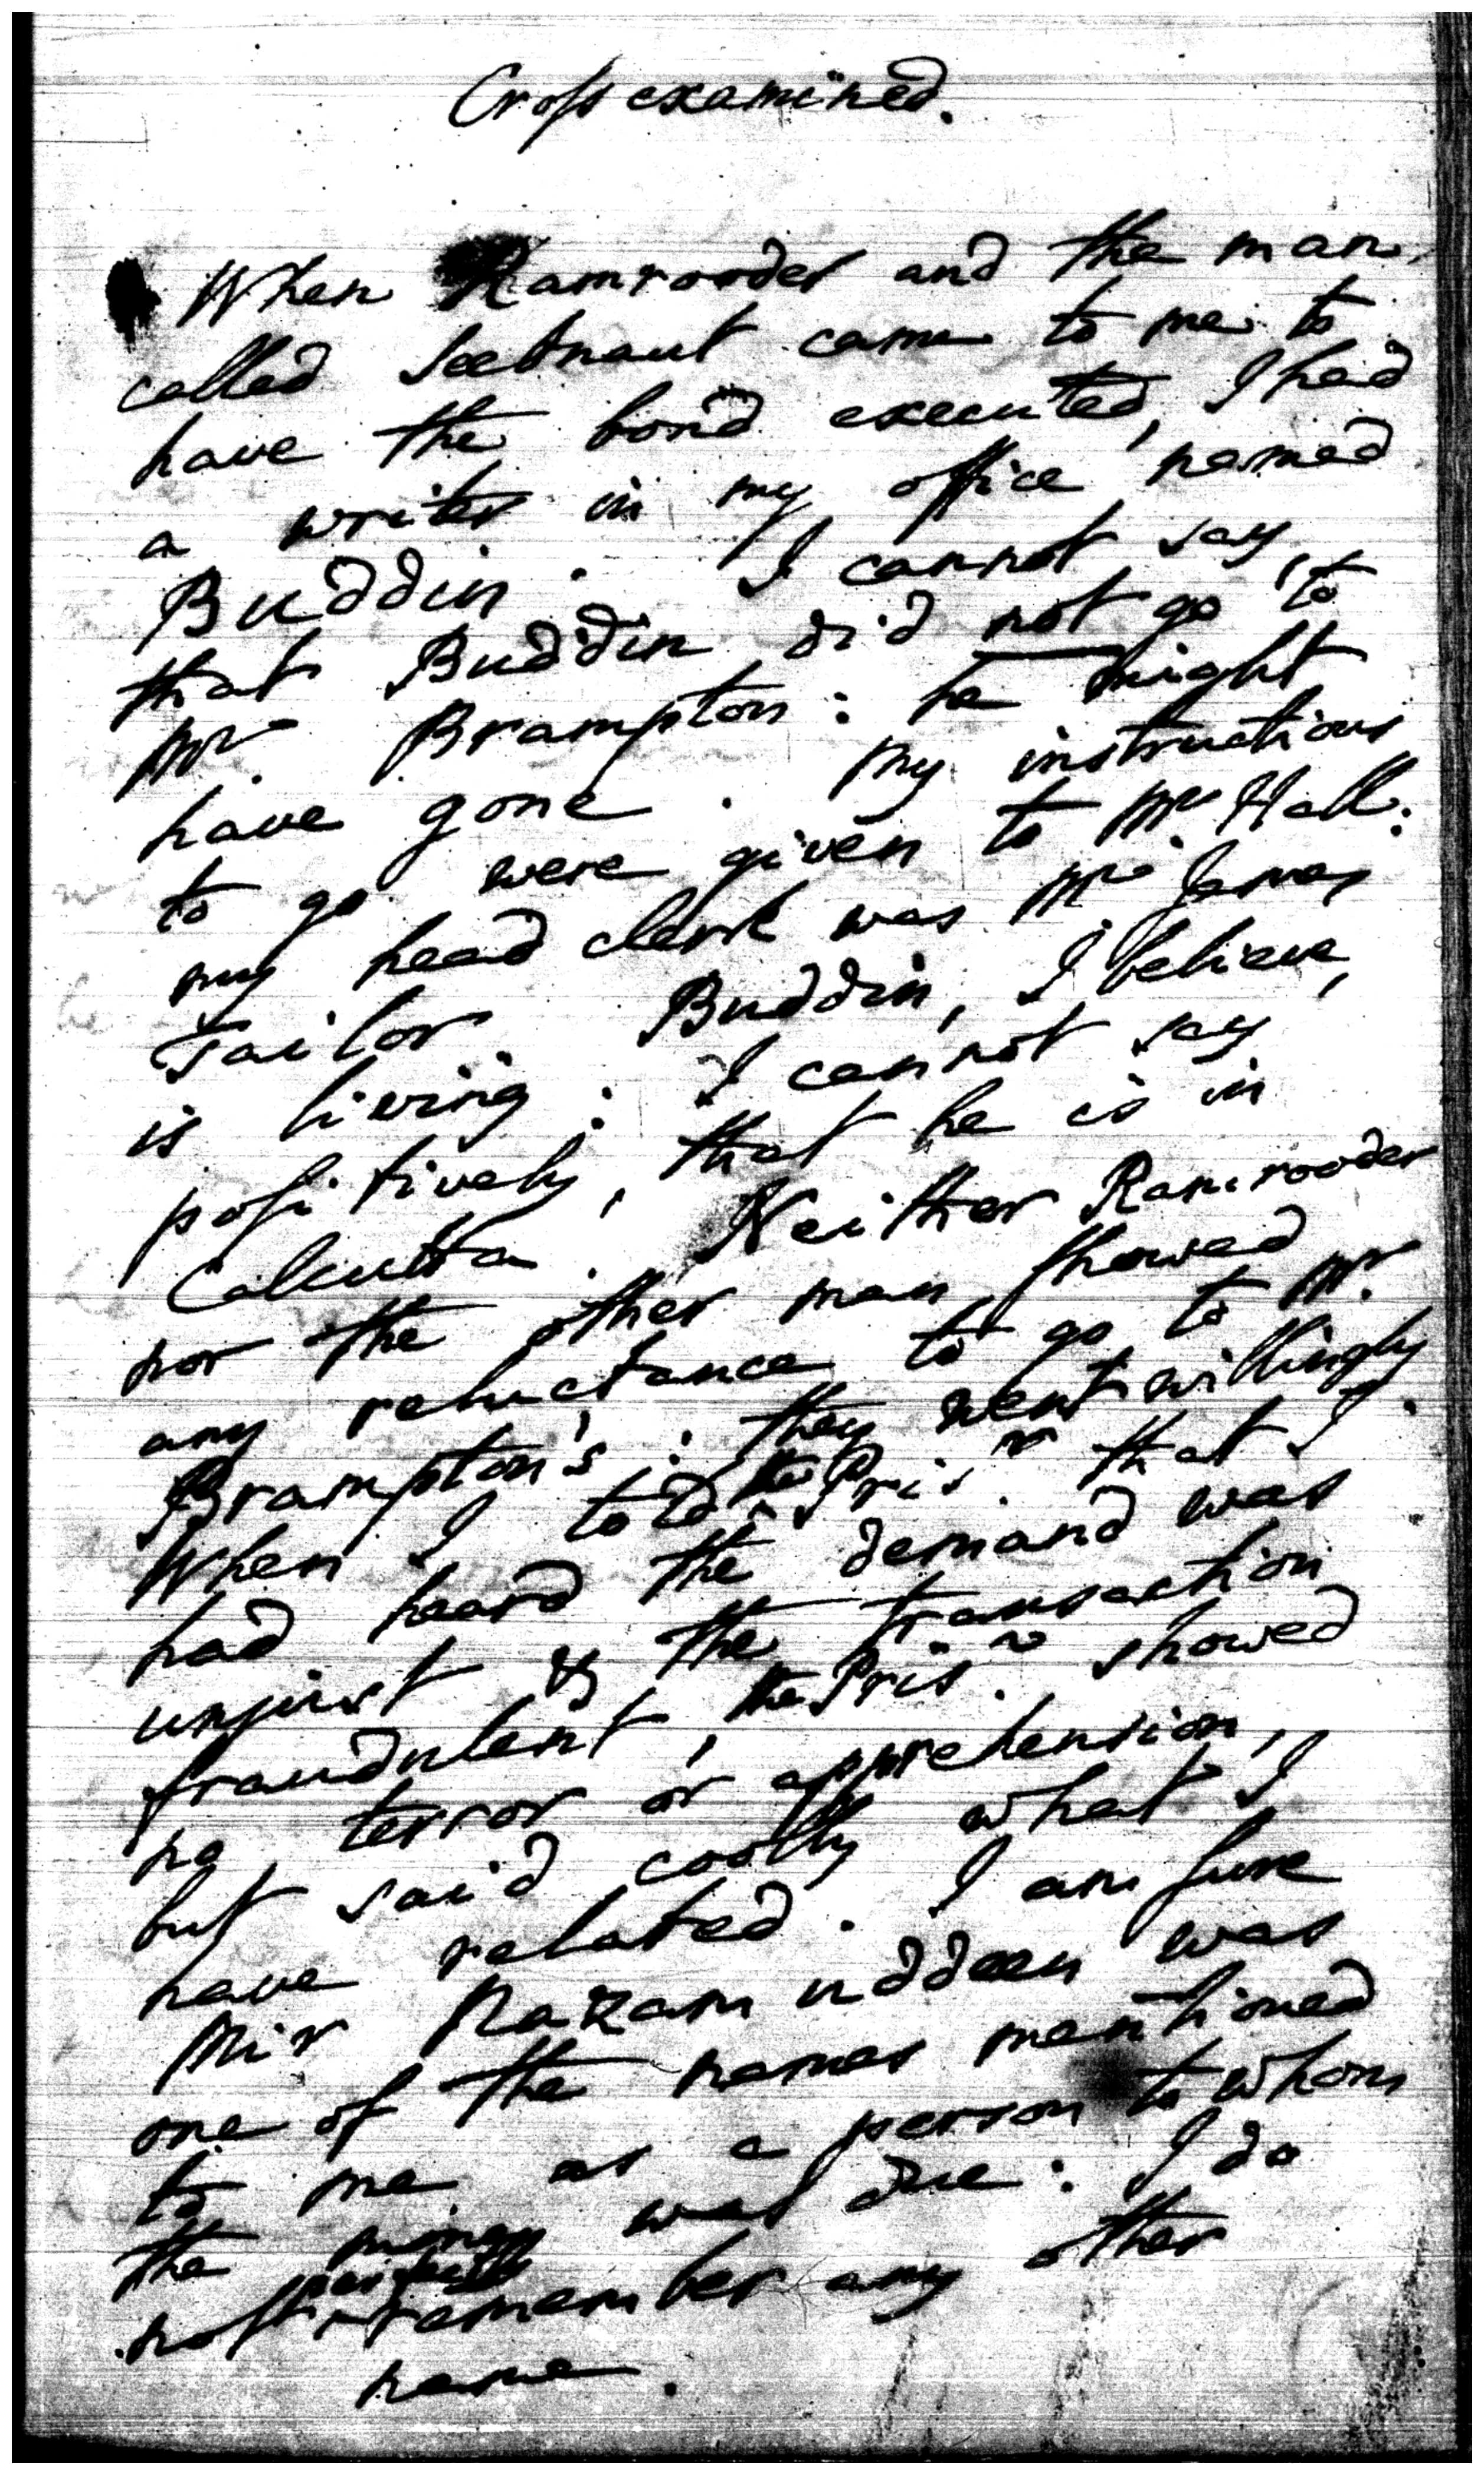 Cross examined.
When Ramrooder and the man
called Seebnaut came to me to
have the bond executed, I had
a writer in my office named
Buddin. I cannot say,
that Buddin did not go to
Mr. Brampton: he might
have gone. My instructions
to go were given to Mr. Hall:
my head clerk was Mr. James
Tailor. Buddin, I believe,
is living: I cannot say
positively, that he is in
Calcutta. Neither Ramrooder
nor the other man showed
any reluctance to go to Mr.
Brampton's: they went willingly.
When I told the Prisr. that I
had heard the demand was
unjust & the transaction
fraudulent, the Prisr. showed
no terror or apprehension,
but said coolly what I
have related. I am sure
Mir Nazam uddeen was
one of the names mentioned
to me as a person to whom
the money was due: I do
not remember any other
name.